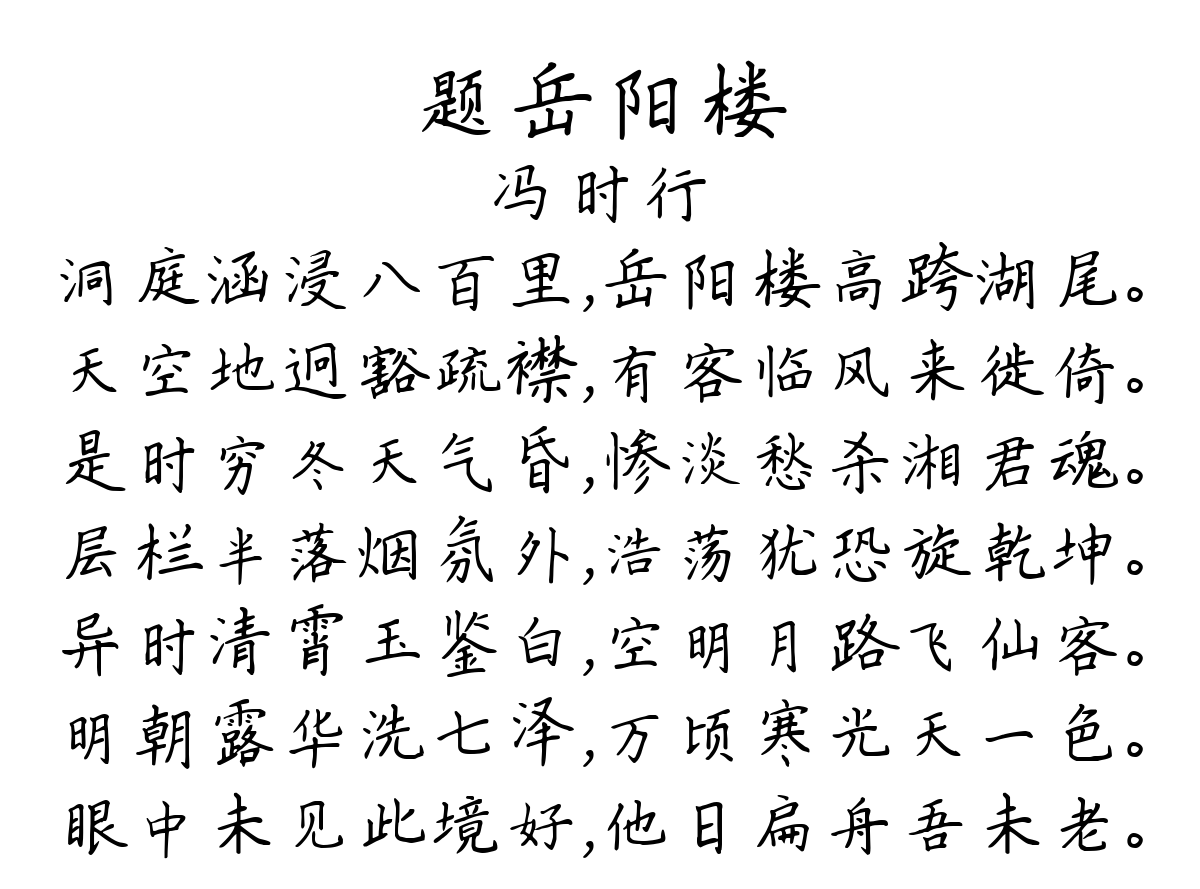 题岳阳楼
冯时行
洞庭涵浸八百里,岳阳楼高跨湖尾。
天空地迥豁疏襟,有客临风来徙倚。
是时穷冬天气昏,惨淡愁杀湘君魂。
层栏半落烟氛外,浩荡犹恐旋乾坤。
异时清霄玉鉴白,空明月路飞仙客。
明朝露华洗七泽,万顷寒光天一色。
眼中未见此境好,他日扁舟吾未老。